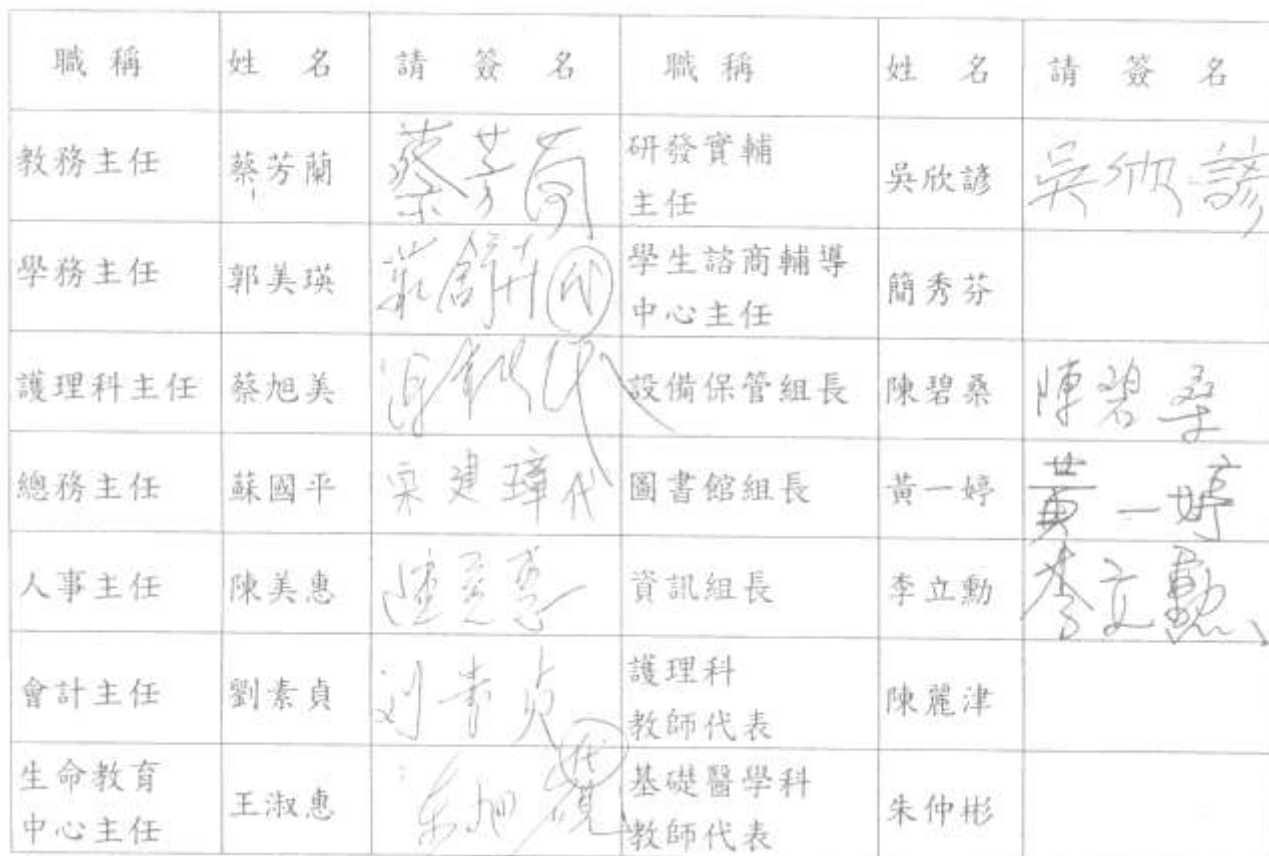 職稱 姓名 請簽名 職稱 姓名 請簽名
教務主任 蔡芳蘭 蔡芳蘭 研發實輔 吳欣諺 吳欣諺
主任
學務主任 郭美瑛 代 學生諮商輔導 簡秀芬
中心主任
護理科主任 蔡旭美 代 設備保管組長 陳碧桑 陳碧桑
總務主任 蘇國平 建璋代 圖書館組長 黃一婷 黃一婷
人事主任 陳美惠 陳美惠 資訊組長 李立勳 李立勳
會計主任 劉素貞 刘素貞 護理科 陳麗津
教師代表
生命教育 王淑惠 代 基礎醫學科 朱仲彬
中心主任 教師代表